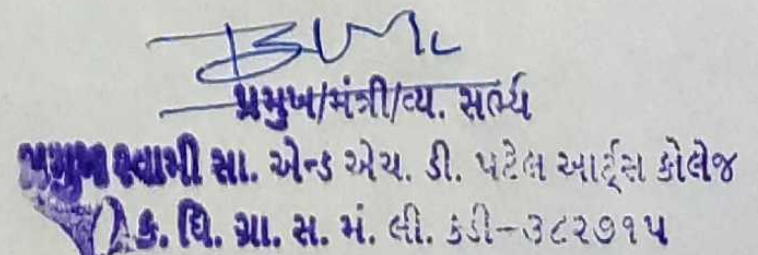 પ્રમુખ/મંત્રી/વ્ય. સભ્ય
પ્રમુખ સ્વામી સા. એન્ડ એચ. ડી. પટેલ આર્ટ્સ કોલેજ
ક. ધિ. ગ્રા. સ. મં. લી. કડી-૩૮૨૭૧૫